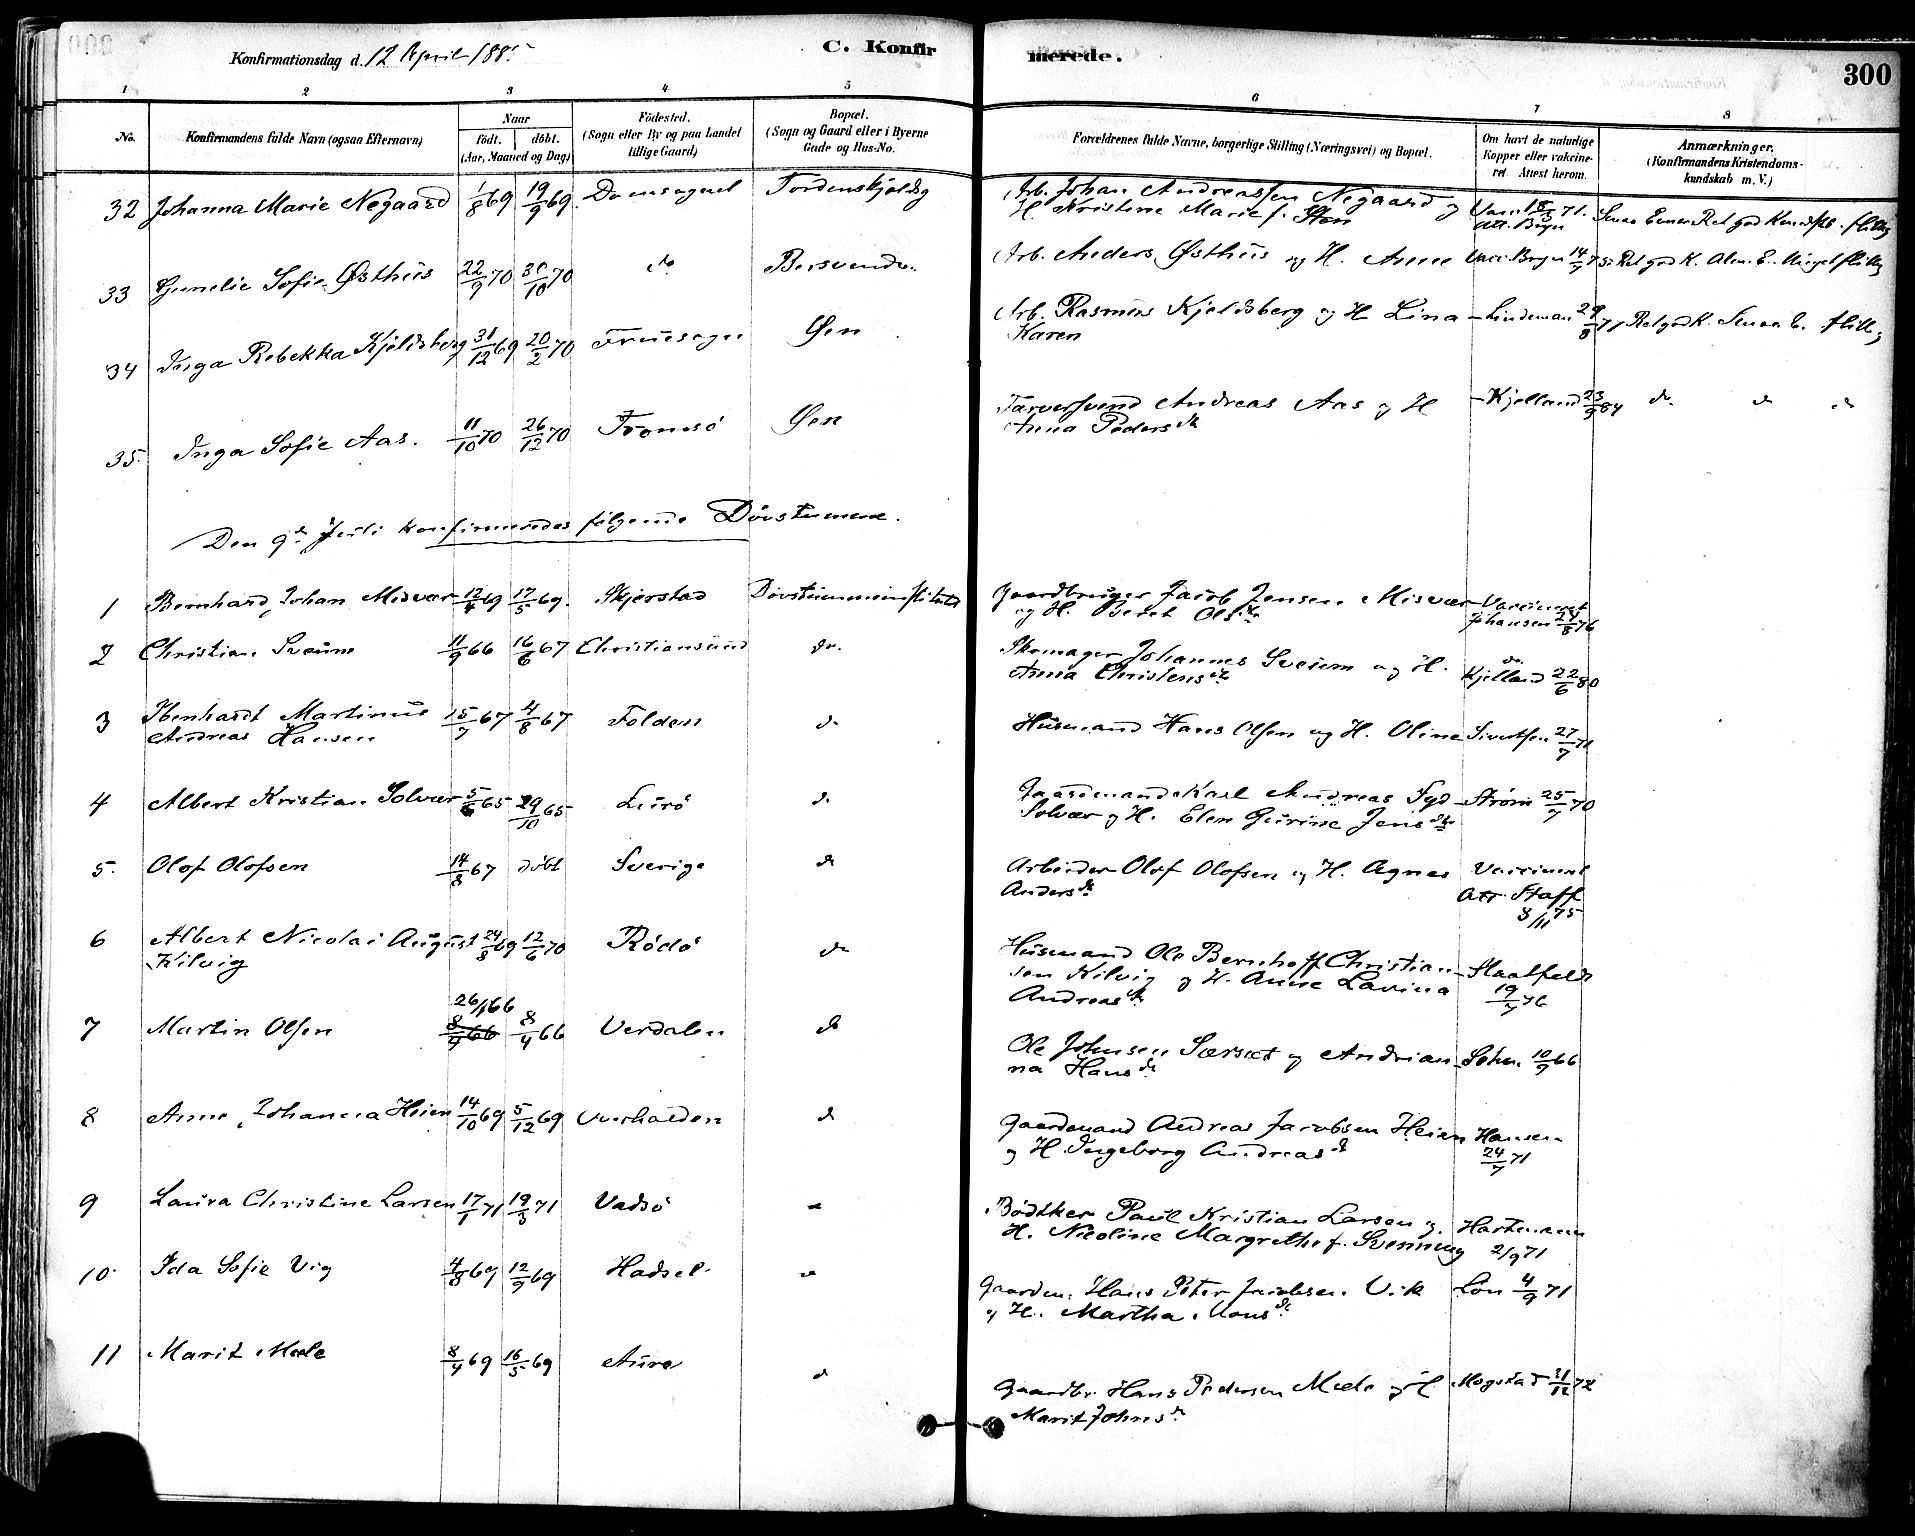 Konfirmationsdag d. 12 April 188
C. Konfirmerede.
300
1 2 3 4 5 6 7 8
No.
Konfirmandens fulde Navn (ogsaa Efternavn)
Naar
födt. döbt.
(Aar, Maaned og Dag)
Födested.
(Sogn eller By og paa Landet
tillige Gaard)
Bopæl.
(Sogn og Gaard eller i Byerne
Gade og Hus-No.
Forældrenes fulde Navne, borgerlige Stilling (Næringsvei) og Bopæl.
Om havt de naturlige
Kopper eller vakcine-
ret. Attest herom.
Anmærkninger.
(Konfirmandens Kristendoms-
kundskab m. V.)
32 Johanna Marie Negaard 1/8 69 19/9 69 Domsognet Tordenskjoldsg Arb. Johan Andreassen Negaard og
H. Kristine Marie f. Sten
Vacc. 18/3 71.
att. Bryn
33 Gunelie Sofie Østhus 22/9 70 30/10 70 do Arb. Anders Østhus og H. Anne
34 Inga Rebekka Kjeldsberg 31/12 69 20/2 70 Fruesogn Øen Arb. Rasmus Kjeldsberg og H. Lina
Karen
Lindeman
Ret god K.
35. Inga Sofie Aas. 11/10 70 26/12 70 Tromsö Øen Andreas Aas og H
Anna Pedersdr
Kjelland 23/9 84 do do do
Den 9de Juli konfirmeredes følgende Døvstumme.
1 Bernhard Johan Misvær 12/4 69 17/5 69. Skjerstad Døvstummeinstitutet Gaardbruger Jacob Jensen Misvær
og H. Beret Olsdr
Vaccineret
Johansen 24/8 76
2 Christian Sveum 11/9 66 16/6 67 Christiansund do. Skomager Johannes Sveum og H.
Anna Christensdr
do.
Kjelland 22/6 80
3 Ibenhardt Martinus
Andreas Hansen
15/7 67 4/8 67 Folden do Husmand Hans Olsen og H. Oline Sivertsen 27/7 71
4 Albert Kristian Solvær 5/6 65 29/10 65 Lurö do Gaardmand Karl Andreas Syd
Solvær og H. Elen Gurine Jensdr
Strøm 25/7 70
5. Olof Olofsen 14/8 67 döbt Sverige do Arbeider Olof Olofsen og H. Agnes
Andersdr
Vaccineret
Att Staff
3/11 75
6 Albert Nicolai August
Kilvig
24/8 69 12/6 70 Rödö do Husmand Ole Bernhoff Christian
sen Kilvig og H. Anne Lavina
Andreasdr
Haatfeldt
19/7 76
7 Martin Olsen 26/1 66
8/4 66 8/4 66 Verdalen do Ole Johnsen Særset og Andrian
na Hansdr
Sohn. 10/9 66
8 Anne Johanna Heien 14/10 69 5/12 69 Overhalden do Gaardmand Andreas Jacobsen Heien
og H Ingeborg Andreasdr
Hansen
24/7 71
9 Laura Christine Larsen 17/1 71 19/3 71 Vadsö do Bødtker Paul Kristian Larsen og
H. Nicoline Margrethe f. Svenning
Hartmann
2/9 71
10. Ida Sofie Vig 4/8 69 12/9 69 Hadsel do Gaardm. Hans Peter Jacobsen Vik
og H. Martha Monsdr
Lon 4/9 71
11 Marit Mele 8/4 69 16/5 69 Aure do Gaardbr. Hans Pedersen Mele og H.
Marit Johnsdr
Mogstad 31/12 72